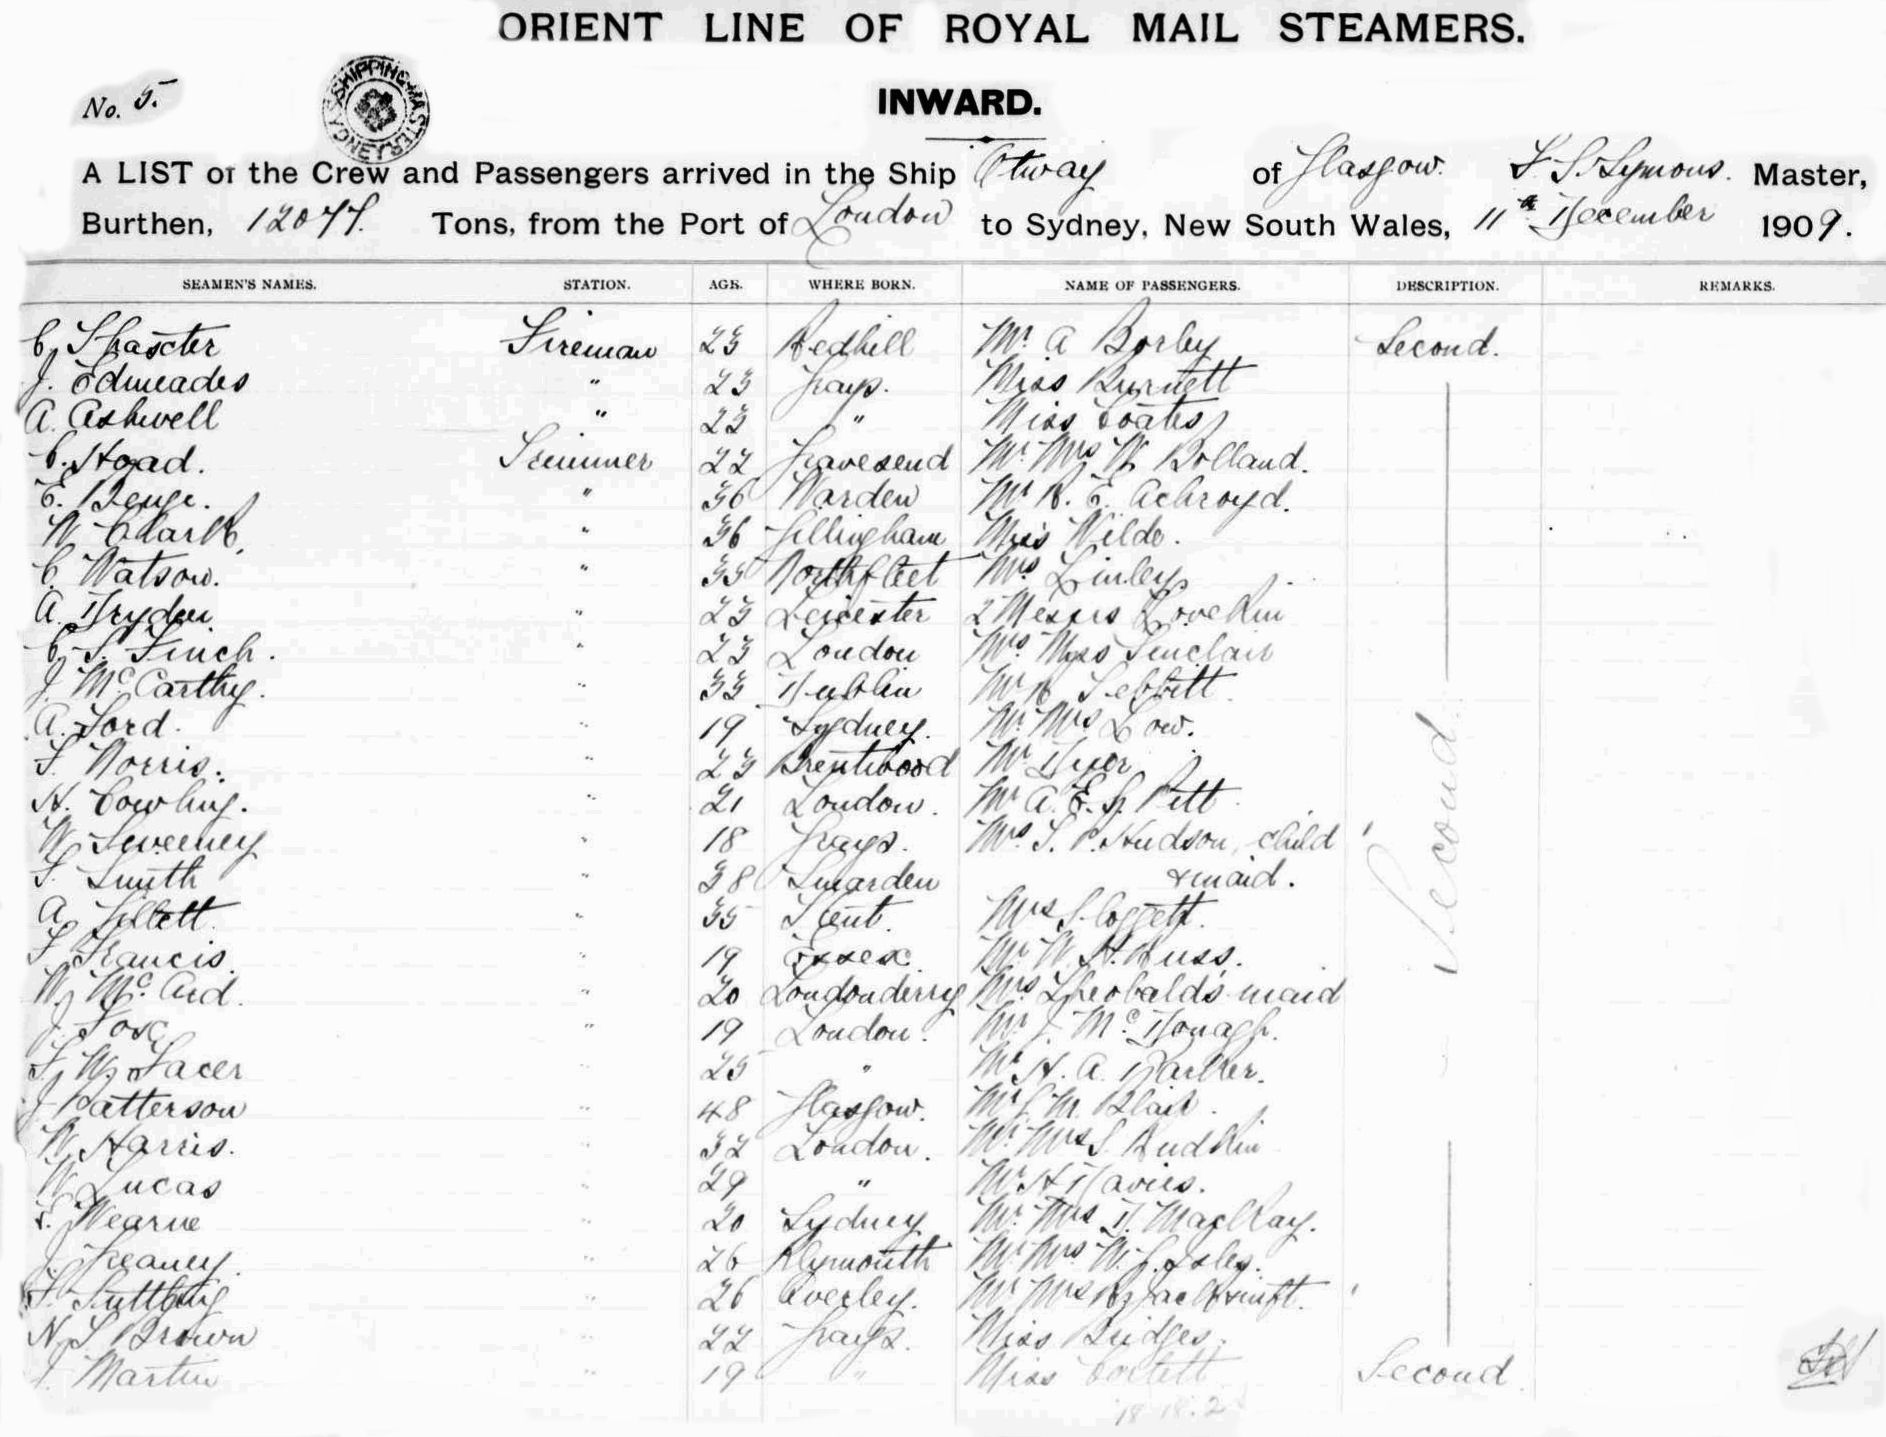 ORIENT LINE OF ROYAL MAIL STEAMERS.
No. 5.
SHIPPING MASTER
SYDNEY
INWARD.
A LIST of the Crew and Passengers arrived in the Ship Otway of Glasgow. Symons. Master,
Burthen, 12077. Tons, from the Port of London to Sydney, New South Wales, 11th December 1909.
SEAMEN'S NAMES. STATION. AGE. WHERE BORN. NAME OF PASSENGERS. DESCRIPTION. REMARKS.
C. Fireman 23 Redhill Mr. A Borley Second.
J. Edmeades " 23 Grays. Miss Burnett
A. Ashwell " 23 " Miss Coates
C. Hoad. Trimmer 22 Gravesend Mr. Mrs W. Bolland.
E. Benge. " 36 Warden Mr R. E. Ackroyd.
W. Clark. " 36 Gillingham Miss Wilde.
C. Watson. " 35 Northfleet Mrs Linley
A. Dryden " 23 Leicester 2 Messrs Lovekin
C. S. Finch. " 23 London Mrs Miss Sinclair
J. McCarthy. " 33 Dublin Mr Sebbitt
A. Ford. " 19 Sydney. Mr. Mrs Low.
F. Norris. " 23 Brentwood Mr Dyer
H. Cowling. " 21 London. Mr A. E. G. Pitt Second
W. Sweeney " 18 Grays. Mrs. S. P. Hudson, child
F. Smith 38 Smarden & maid.
A. Gillett. " 35 Kent. Mrs Cloggett.
F. Francis. " 19 Essex. Mr. W. H. Huss.
W. McAid. " 20 Londonderry Mrs Theobald's maid
J. Fox " 19 London. Mr J. McDonagh.
F. W. Facer " 25 " Mr H. A. Barker.
J Patterson " 48 Glasgow. M. Blair.
W. Harris. " 32 London. Mr. Mrs S. Rudkin
W. Lucas " 29 " Mr H Davies.
Wearne " 20 Sydney Mr. Mrs D. MacKay.
J. Greaney. " 26 Plymouth Mr Mrs W. J. Isley.
F. Suttling " 26 Overley. Mr Mrs
N. S. Brown " 22 Grays. Miss Bridges.
J. Martin " 19 " Miss Corlett Second